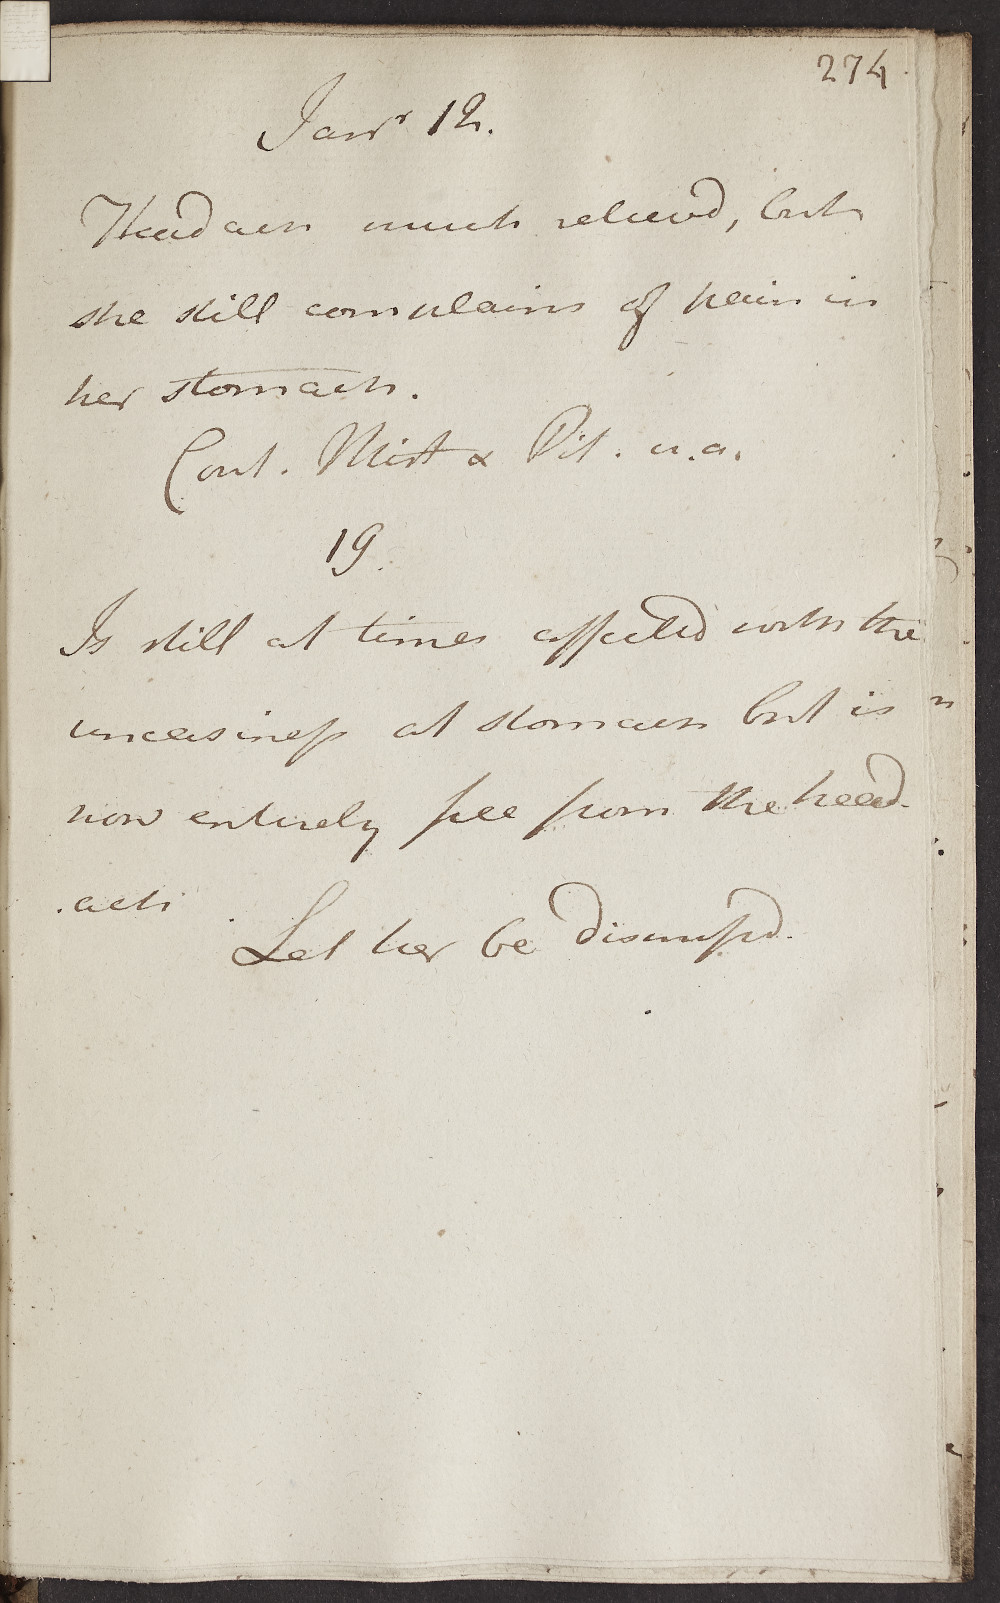 274
Janr 12.
Headach much relievd, but
she still complains of pain in
her stomach.
Cont. Mist & Pil. u.a.
19
Is still at times affected with the
uneasiness at stomach but is
now entirely free from the head-
-ach
Let her be dismissd.